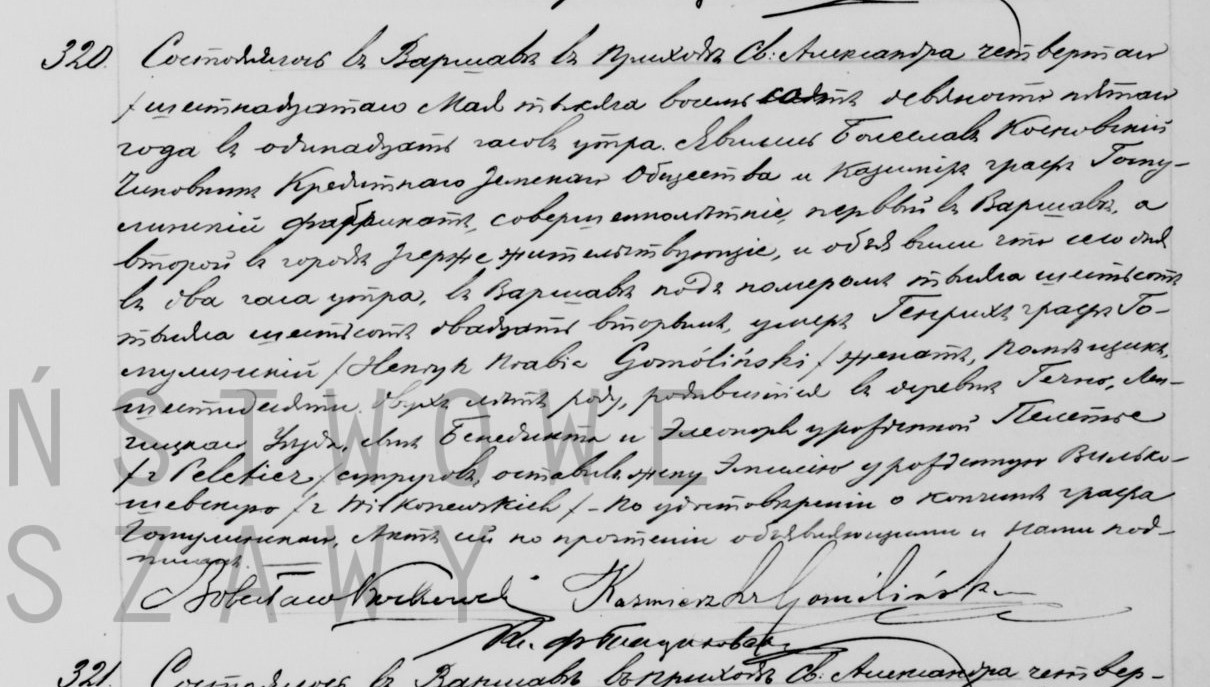 320. Состоялось въ Варшавѣ въ приходѣ Св: Александра четвертаго
/ шестнадцатаго Мая тысяча восемь сотъ девяносто пятаго
года въ одинадцать часовъ утра. Явились Болеславъ Косновскій
Чиновникъ Кредитнаго Земскаго Общества и Казиміръ графъ Гому-
линскій фабрикантъ, совершеннолѣтніе, первый въ Варшавѣ, а
второй въ городѣ Згерже жительствующіе, и объявили что сего дня
въ два часа утра, въ Варшавѣ подъ номеромъ тысяча шестьсотъ
тысяча шестьсотъ двадцать вторымъ, умеръ Генрихъ графъ Го-
мулинскій / Henryk Hrabia Gomóliński / женатъ, помѣщикъ,
шестидесяти двухъ лѣтъ роду, родившійся въ деревнѣ Лен-
чицкаго Уѣзда, сынъ Бенедикта и Элеоноры урожденной Пелетье
/ z Peletier / супруговъ, оставивъ жену Эмилію урожденную Вилько-
шевскую / z Wilkoszewskich / - По удостовѣреніи о кончинѣ графа
Гомулинскаго, Актъ сей по прочтеніи объявляющими и Нами под-
писанъ.
Bolesław Kazimierz hr Gomoliński
321. Состоялось въ Варшавѣ въ приходѣ Св: Александра четвер-
ŃSTWOWE
SZAWY